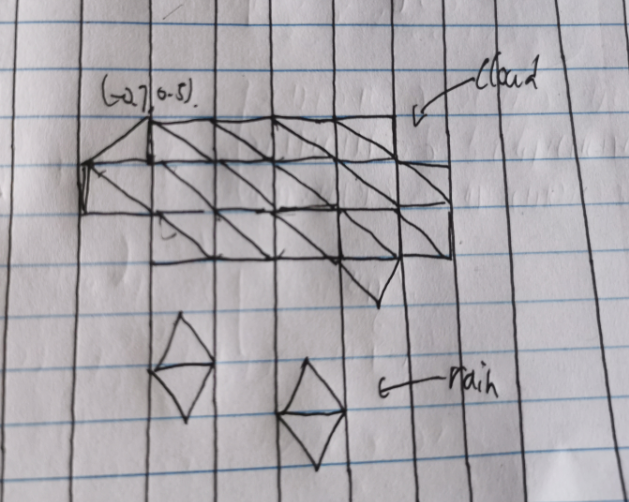 (-0.7,0.5).
Cloud
rain